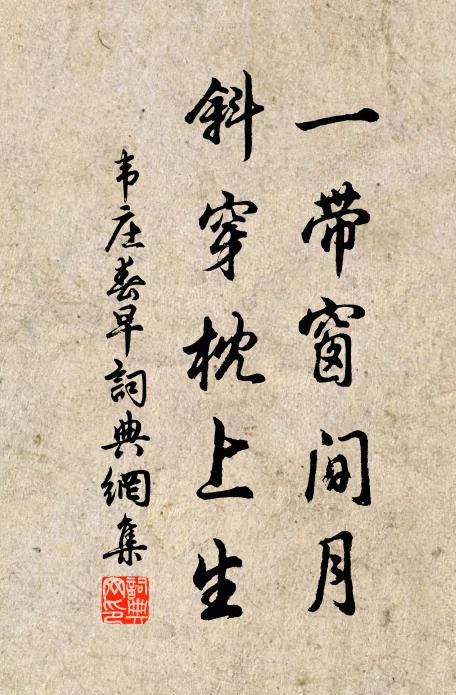 一帶窗间月
斜穿枕上生
韦庄春早詞典網集
詞典網印